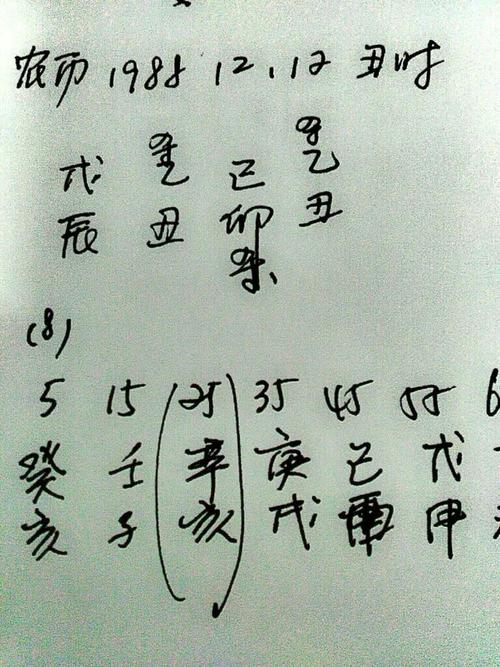 农历 1988 12.12 丑时
杀 杀
戊 乙 己 乙
辰 丑 卯 丑
杀
(8)
5 15 (25) 35 45 55 6
癸 壬 辛 庚 己 戊
亥 子 亥 戌 申